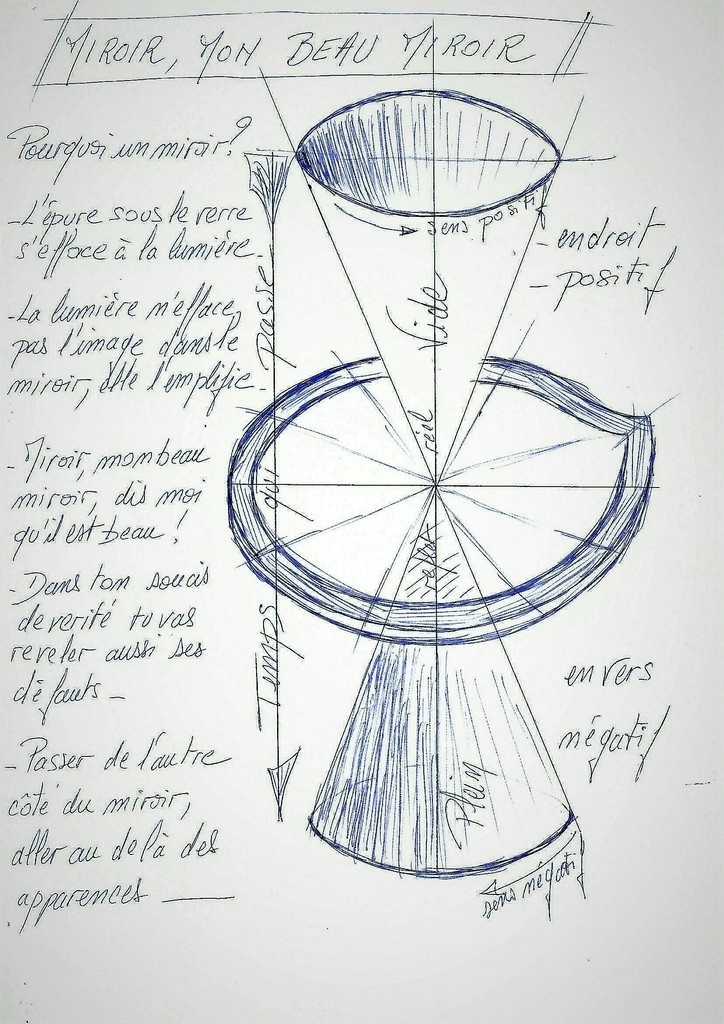 MIROIR, MON BEAU MIROIR
Pourquoi un miroir?
-L'épure sous le verre
s'efface à la lumière.
-La lumière n'efface,
pas l'image dans le
miroir, elle l'emplifie-
-Miroir, mon beau
miroir, dis moi
qu'il est beau!
-Dans ton soucis
de verité tu vas
reveler aussi ses
défauts-
-Passer de l'autre
côté du miroir,
aller au delà des
apparences
Temps qui passe
sens positif
-endroit
-positif
Vide
réel
reflet
Plein
envers
négatif
sens négatif